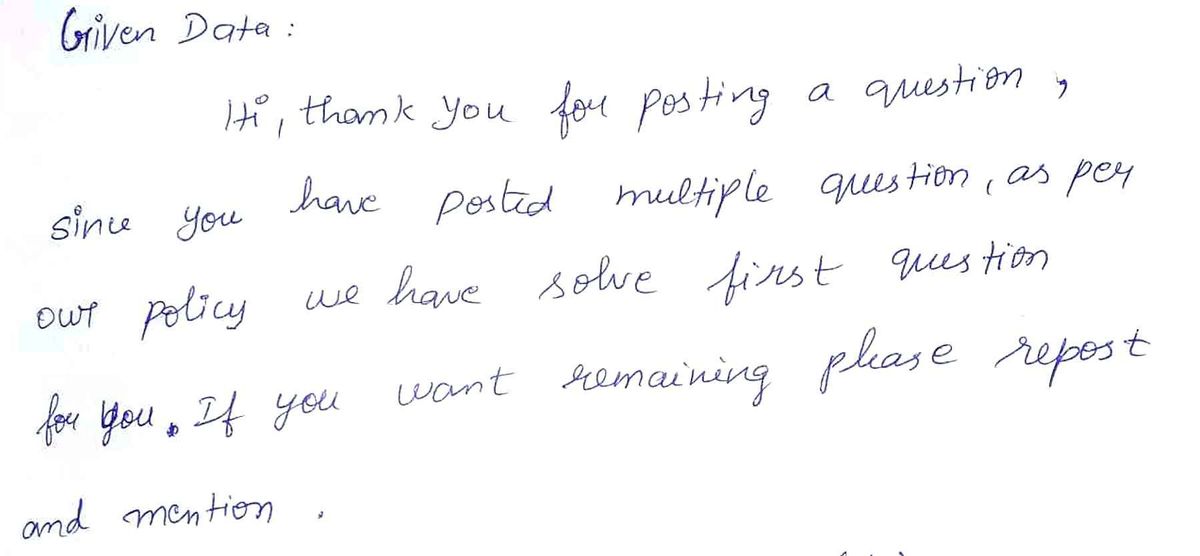 Given Data :
Hi, thank you for posting a question ,
since you have posted multiple question, as per
our policy we have solve first question
for you. If you want remaining please repost
and mention .